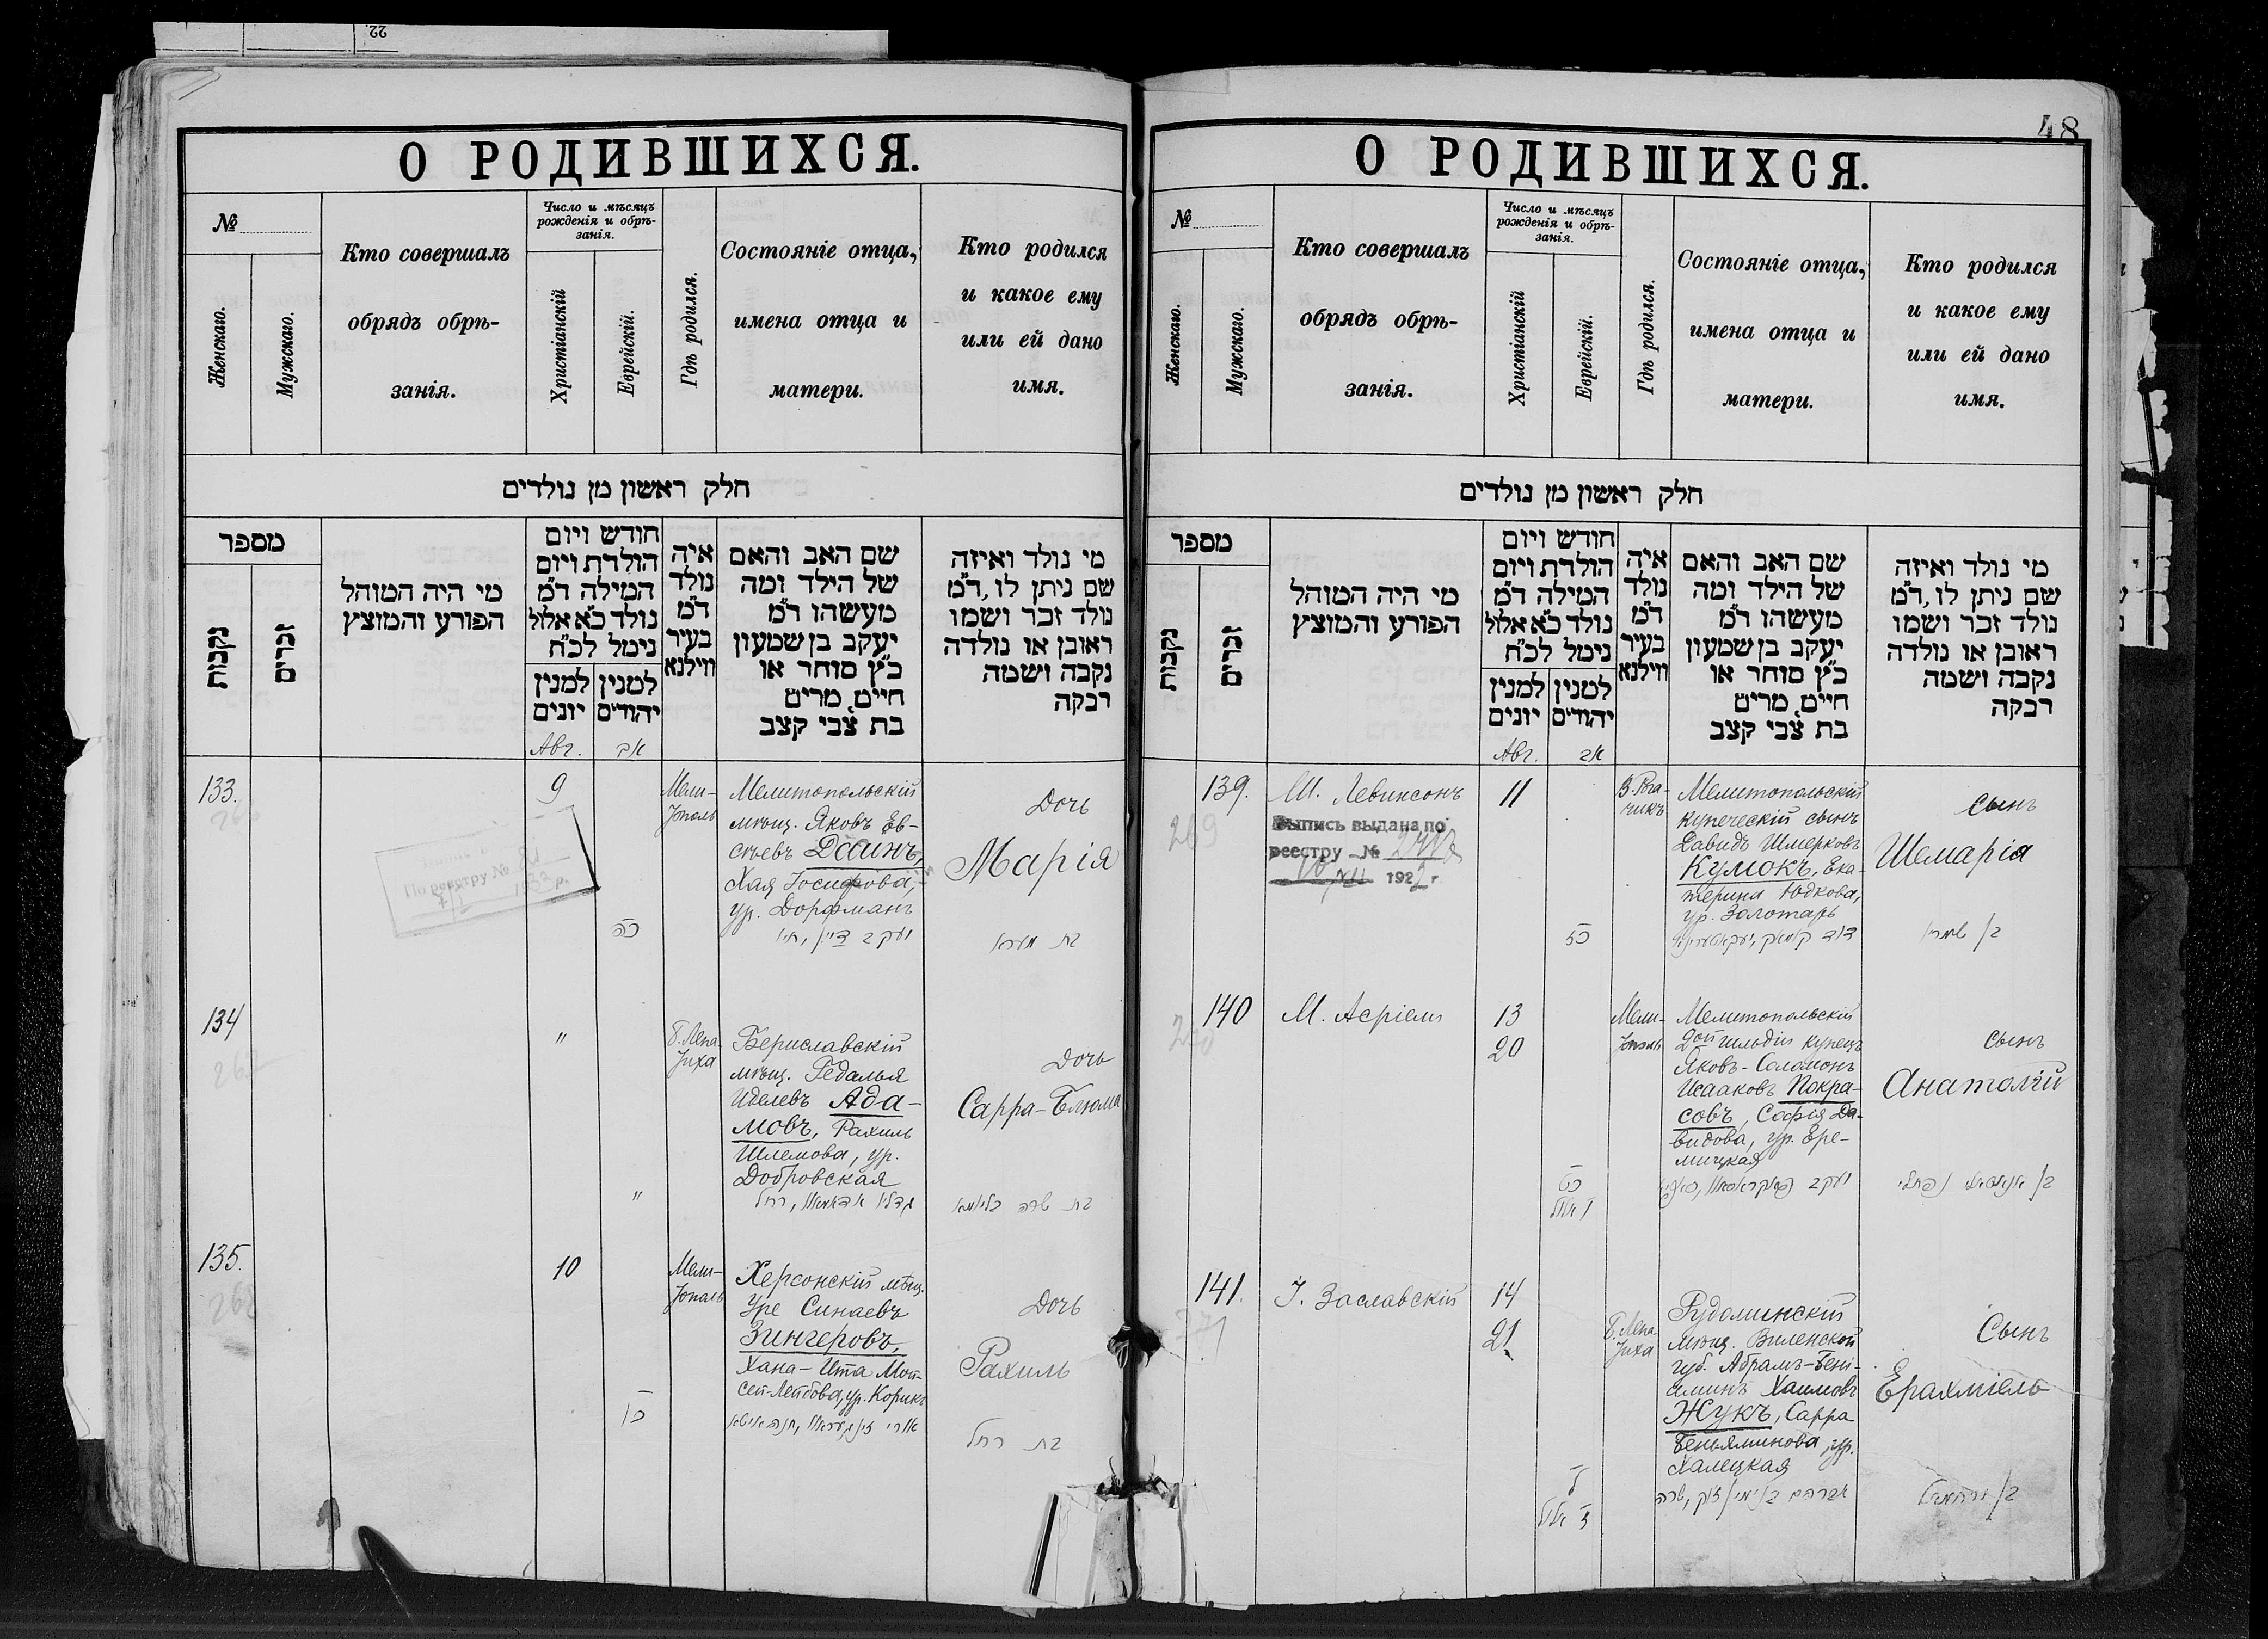 22.
О РОДИВШИХСЯ.
№
Женскаго.
Мужскаго.
Кто совершалъ
обрядъ обрѣ-
занія.
Число и мѣсяцъ
рожденія и обрѣ-
занія.
Христіанскій
Еврейскій.
Гдѣ родился.
Состояніе отца,
имена отца и
матери.
Кто родился
и какое ему
или ей дано
имя.
חלק ראשון מן נולדים
מספר
נקבות
זכרים
מי היה המוהל
הפורע והמוצץ
חודש ויום
הולדת ויום
המילה ד״מ
נולד כ״א אלול
נימל לכ״ח
למנין
יונים
למנין
יהודים
איה
נולד
ד״מ
בעיר
ווילנא
שם האב והאם
של הילד ומה
מעשהו ד״מ
יעקב בן שמעון
כ״ץ סוחר או
חיים, מרים
בת צבי קצב
מי נולד ואיזה
שם ניתן לו, ד״מ
נולד זכר ושמו
ראובן או נולדה
נקבה ושמה
רבקה
Авг.
אב
133.
266
9
כה
Мели-
тополь
Мелитопольскій
мѣщ. Яковъ Ев-
сѣевъ Даинъ,
Хая Іосифова,
ур. Дорфманъ
יעקב דיין, חיו
Дочь
Марія
בת מארא
По реестру №
134
267
"
"
Б. Лепа-
тиха
Бериславскій
мѣщ. Гедалья
Иделевъ Ада-
мовъ, Рахиль
Шлемова, ур.
Добровская
גדליו אדאמאוו, רחל
Дочь
Сарра-Блюма
בת שרה בליומא
135.
268
10
כו
Мели-
тополь
Херсонскій мѣщ.
Уре Синаевъ
Зингеровъ,
Хана-Ита Мой-
сей-Лейбова, ур. Корикъ
אורי זינגעראוו, חנה איטא
Дочь
Рахиль
בת רחל
48
О РОДИВШИХСЯ.
№
Женскаго.
Мужскаго.
Кто совершалъ
обрядъ обрѣ-
занія.
Число и мѣсяцъ
рожденія и обрѣ-
занія.
Христіанскій
Еврейскій.
Гдѣ родился.
Состояніе отца,
имена отца и
матери.
Кто родился
и какое ему
или ей дано
имя.
חלק ראשון מן נולדים
מספר
נקבות
זכרים
מי היה המוהל
הפורע והמוצץ
חודש ויום
הולדת ויום
המילה ד״מ
נולד כ״א אלול
נימל לכ״ח
למנין
יונים
למנין
יהודים
איה
נולד
ד״מ
בעיר
ווילנא
שם האב והאם
של הילד ומה
מעשהו ד״מ
יעקב בן שמעון
כ״ץ סוחר או
חיים, מרים
בת צבי קצב
מי נולד ואיזה
שם ניתן לו, ד״מ
נולד זכר ושמו
ראובן או נולדה
נקבה ושמה
רבקה
Авг.
אב
139.
269
Ш. Левинсонъ
Выпись выдана по
реестру №
1922 г.
11
כז
В. Рога-
чикъ
Мелитопольскій
купеческій сынъ
Давидъ Шмерковъ
Кумокъ, Ека-
терина Юдкова,
ур. Золотарь
דוד קומאק,
Сынъ
Шемарія
בן שמריו
140
270
М. Асріелъ
13
20
כט
ו אלול
Мели-
тополь
Мелитопольскій
2ой гильдіи купецъ
Яковъ-Соломонъ
Исааковъ Покра-
совъ, Софія Да-
видова, ур. Ере-
мицкая
יעקב פאקראסאוו,
Сынъ
Анатолій
בן
141.
271
І. Заславскій
14
21
ל
ז אלול
Б. Лепа-
тиха
Рудоминскій
мѣщ. Виленской
губ. Абрамъ-Бені-
аминъ Хаимовъ
Жукъ, Сарра
Беньяминова, ур.
Халецкая
אברהם בנימין זוק, שרה
Сынъ
Ерахміель
בן ירחמיאל